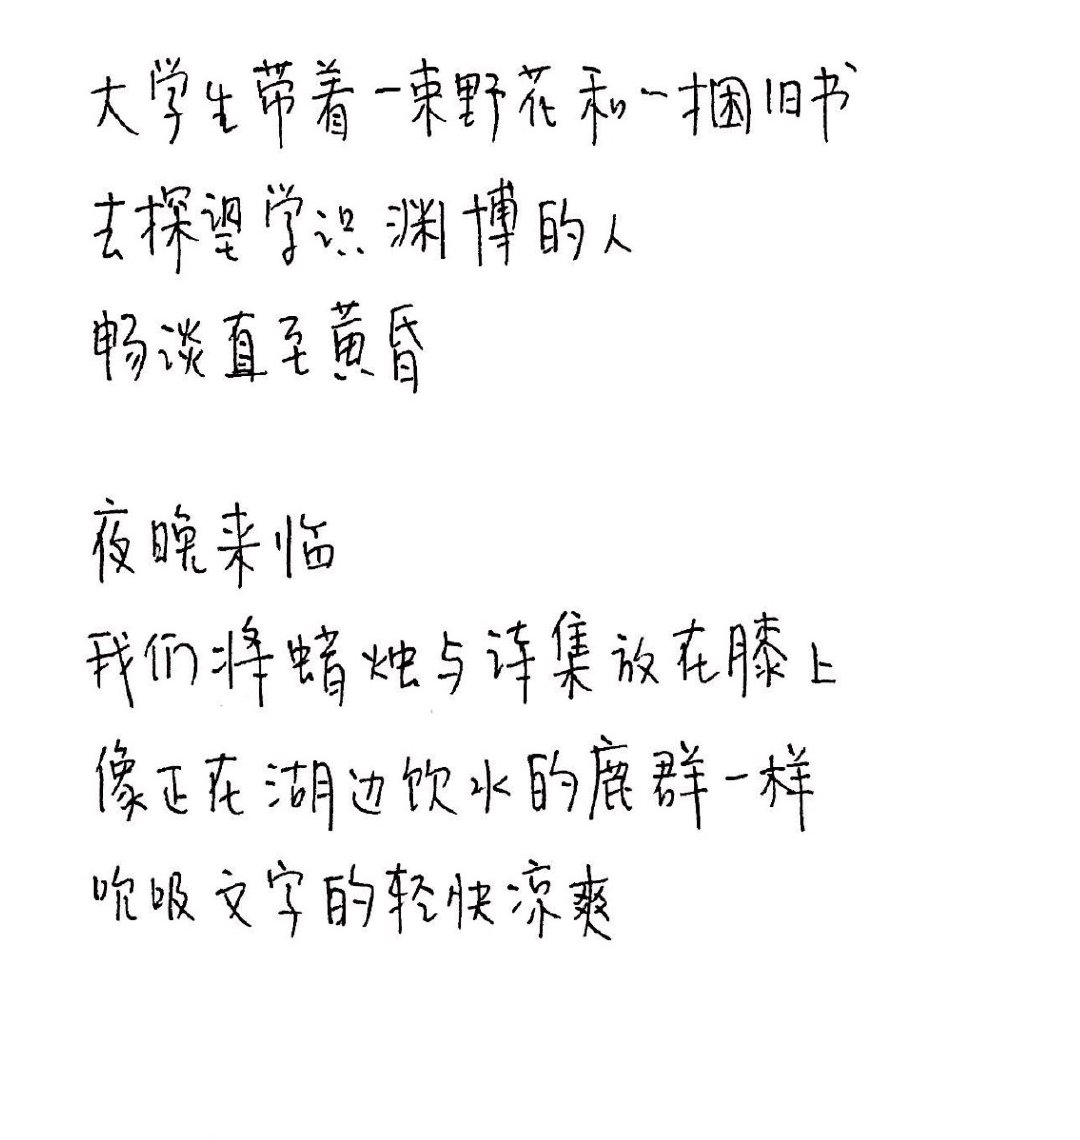 大学生带着一束野花和一捆旧书
去探望学识渊博的人
畅谈直至黄昏
夜晚来临
我们将蜡烛与诗集放在膝上
像正在湖边饮水的鹿群一样
吮吸文字的轻快凉爽